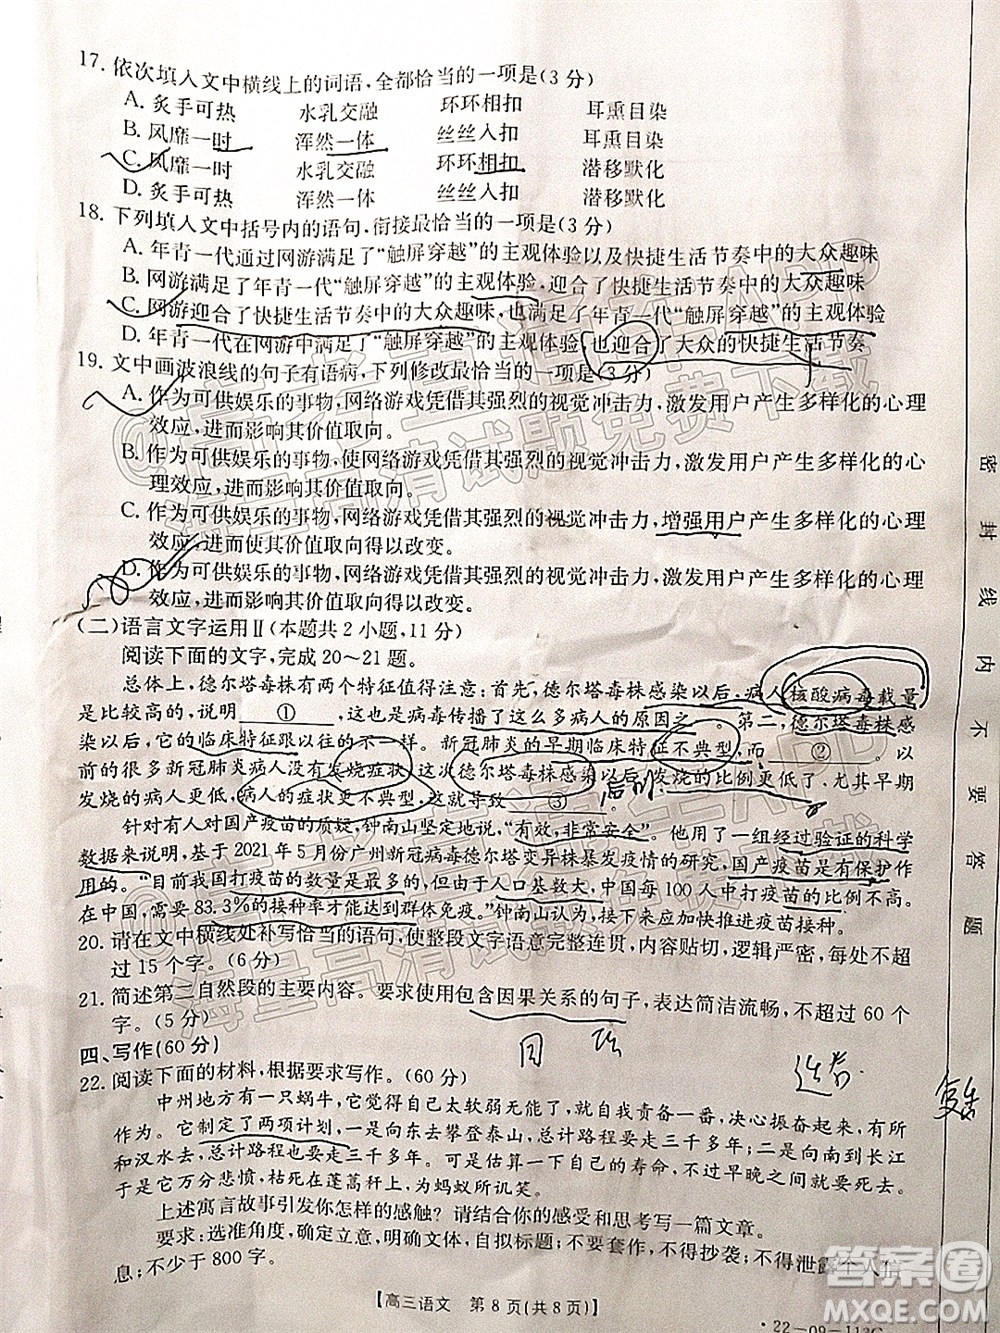 17. 依次填入文中横线上的词语,全都恰当的一项是(3分)
A. 炙手可热 水乳交融 环环相扣 耳熏目染
B. 风靡一时 浑然一体 丝丝入扣 耳熏目染
C. 风靡一时 水乳交融 环环相扣 潜移默化
D. 炙手可热 浑然一体 丝丝入扣 潜移默化
18. 下列填入文中括号内的语句,衔接最恰当的一项是(3分)
A. 年青一代通过网游满足了“触屏穿越”的主观体验以及快捷生活节奏中的大众趣味
B. 网游满足了年青一代“触屏穿越”的主观体验,迎合了快捷生活节奏中的大众趣味
C. 网游迎合了快捷生活节奏中的大众趣味,也满足了年青一代“触屏穿越”的主观体验
D. 年青一代在网游中满足了“触屏穿越”的主观体验,也迎合了大众的快捷生活节奏
19. 文中画波浪线的句子有语病,下列修改最恰当的一项是(3分)
A. 作为可供娱乐的事物,网络游戏凭借其强烈的视觉冲击力,激发用户产生多样化的心理
效应,进而影响其价值取向。
B. 作为可供娱乐的事物,使网络游戏凭借其强烈的视觉冲击力,激发用户产生多样化的心
理效应,进而影响其价值取向。
C. 作为可供娱乐的事物,网络游戏凭借其强烈的视觉冲击力,增强用户产生多样化的心理
效应,进而影响其价值取向得以改变。
D. 作为可供娱乐的事物,网络游戏凭借其强烈的视觉冲击力,激发用户产生多样化的心理
效应,进而影响其价值取向得以改变。
(二)语言文字运用Ⅱ(本题共2小题,11分)
阅读下面的文字,完成20~21题。
总体上,德尔塔毒株有两个特征值得关注:首先,德尔塔毒株感染以后,病人核酸病毒载量
是比较高的,说明 ① ,这也是病毒传播了这么多病人的原因之一。第二,德尔塔毒株感
染以后,它的临床特征跟以往的不一样。新冠肺炎的早期临床特征不典型,而 ② 。以
前的很多新冠肺炎病人没有发烧症状,这次德尔塔毒株感染以后,发烧的比例更低了。尤其早期
发烧的病人,病人的症状更不典型,这就导致 ③ 。
针对有人对国产疫苗的质疑,钟南山坚定地说,“有效,非常安全”。他用了一组经过验证的科学
数据来说明,基于2021年5月份广州新冠病毒德尔塔变异株暴发疫情的研究,国产疫苗是有保护作
用的。“目前我国打疫苗的数量是最多的,但由于人口基数大,中国每100人中打疫苗的比例不高。
在中国,需要83.3%的接种率才能达到群体免疫。”钟南山认为,接下来应加快推进疫苗接种。
20. 请在文中横线处补写恰当的语句,使整段文字语意完整连贯,内容贴切,逻辑严密,每处不超
过15个字。(6分)
21. 简述第二自然段的主要内容。要求使用包含因果关系的句子,表达简洁流畅,不超过60个
字。(5分)
四、写作(60分)
22. 阅读下面的材料,根据要求写作。(60分)
中州地方有一只蜗牛,它觉得自己太软弱无能了,就自我责备一番,决心振奋起来,有所
作为。它制定了两项计划,一是向东去攀登泰山,总计路程要走三千多年;二是向南去到长江
和汉水,总计路程也要走三千多年。可是估算一下自己的寿命,不过早晚之间就要死去。于
是它万分悲愤,枯死在蓬蒿秆上,为蝼蚁所讥笑。
上述寓言故事引发你怎样的感触?请结合你的感受和思考写一篇文章。
要求:选准角度,确定立意,明确文体,自拟标题;不要套作,不得抄袭;不得泄露个人信
息;不少于800字。
【高三语文 第8页(共8页)】
·22-09-113C·
密封线内不要答题
答案圈